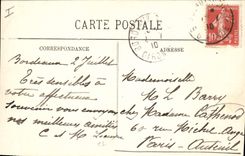 I
CARTE POSTALE
CORRESPONDANCE
ADRESSE
Bordeaux 2 Juillet
Très sensibles à
votre affectueux
souvenir vous envoyons
nos meilleures amitiés
C et M
10
Mademoiselle
M L Barry
chez Madame
60 rue
Paris-Auteuil